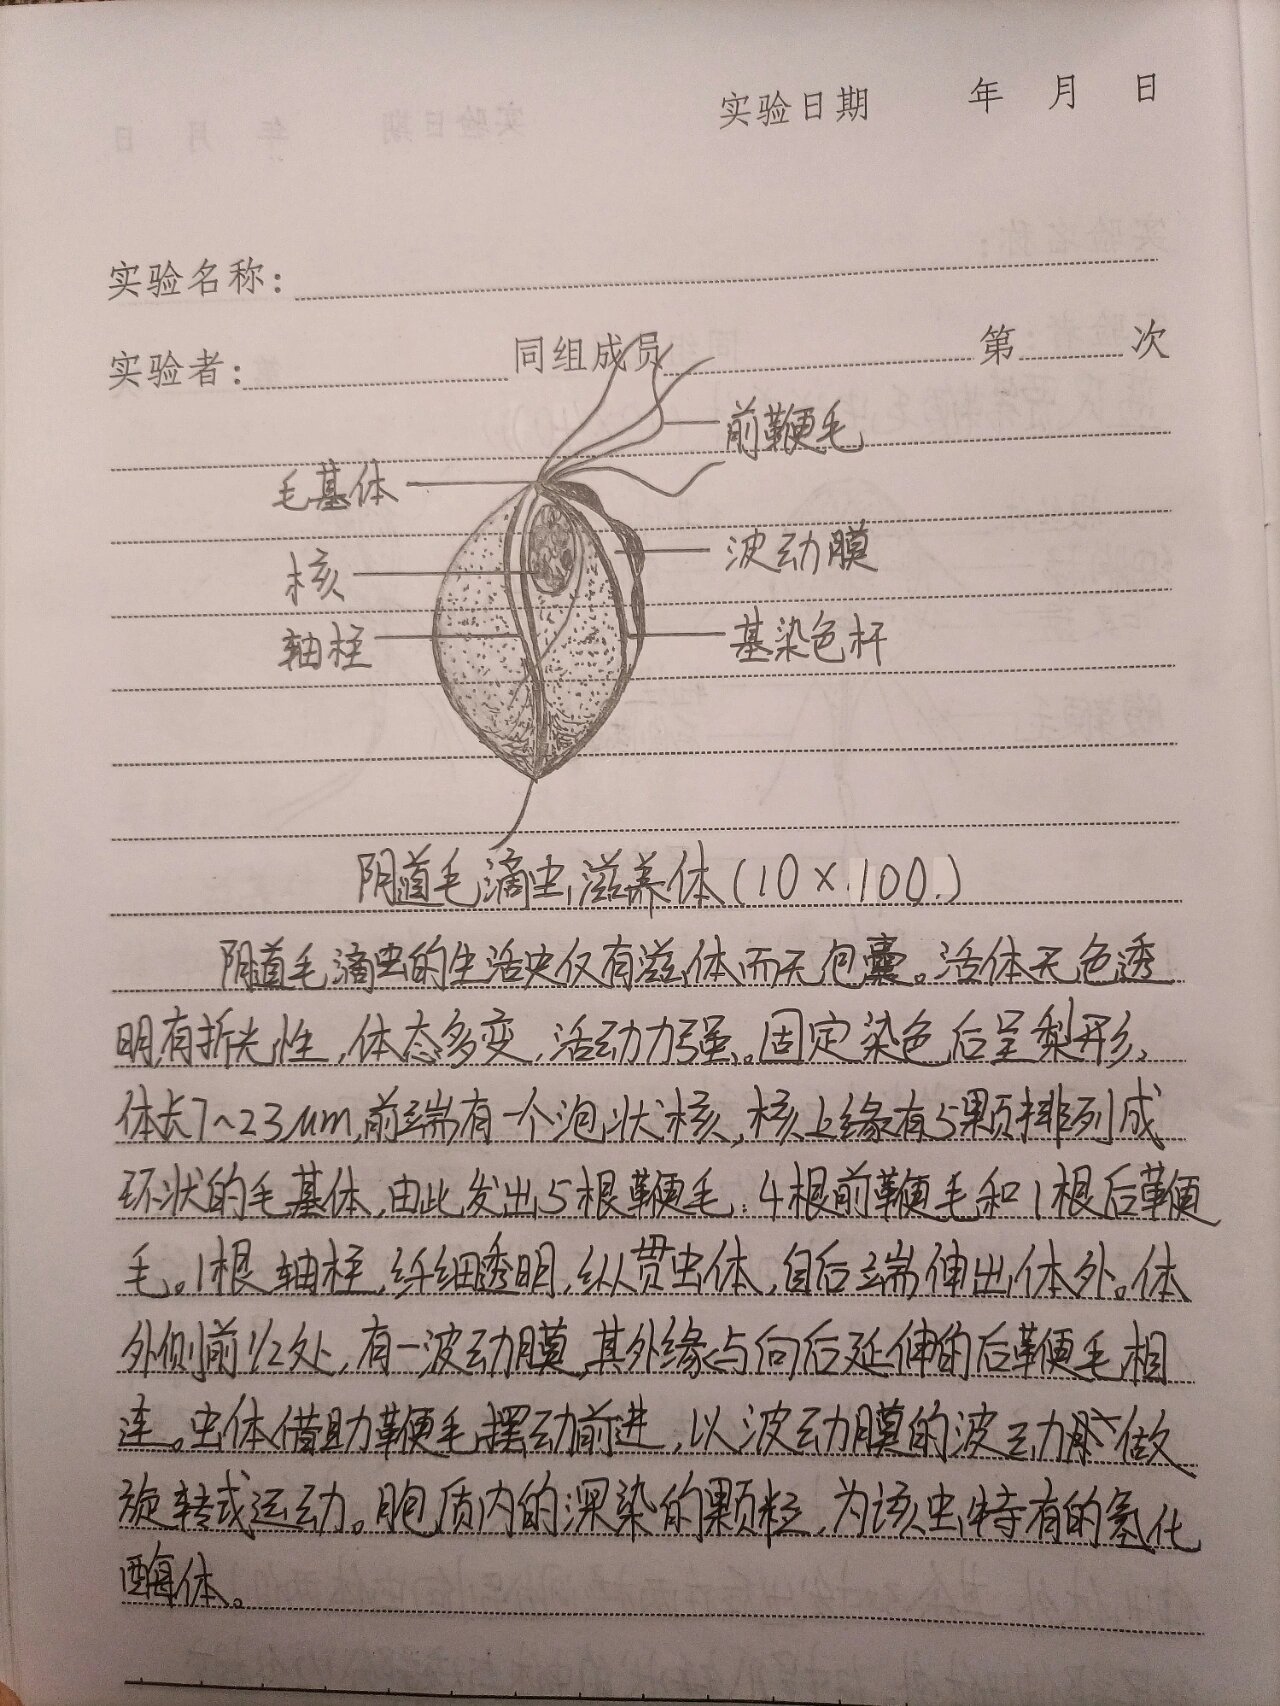 实验日期 年 月 日
实验名称:
实验者: 同组成员 第 次
前鞭毛
毛基体
波动膜
核
基染色杆
轴柱
阴道毛滴虫滋养体(10×100)
阴道毛滴虫的生活史仅有滋体而无包囊。活体无色透
明有折光性,体态多变,活动力强。固定染色后呈梨形,
体长7~23μm,前端有一个泡状核,核上缘有5颗排列成
环状的毛基体,由此发出5根鞭毛:4根前鞭毛和1根后鞭
毛。1根轴柱,纤细透明,纵贯虫体,自后端伸出体外。体
外侧前1/2处,有一波动膜,其外缘与向后延伸的后鞭毛相
连。虫体借助鞭毛摆动前进,以波动膜的波动做
旋转式运动。胞质内的深染的颗粒,为该虫特有的氢化
酶体。